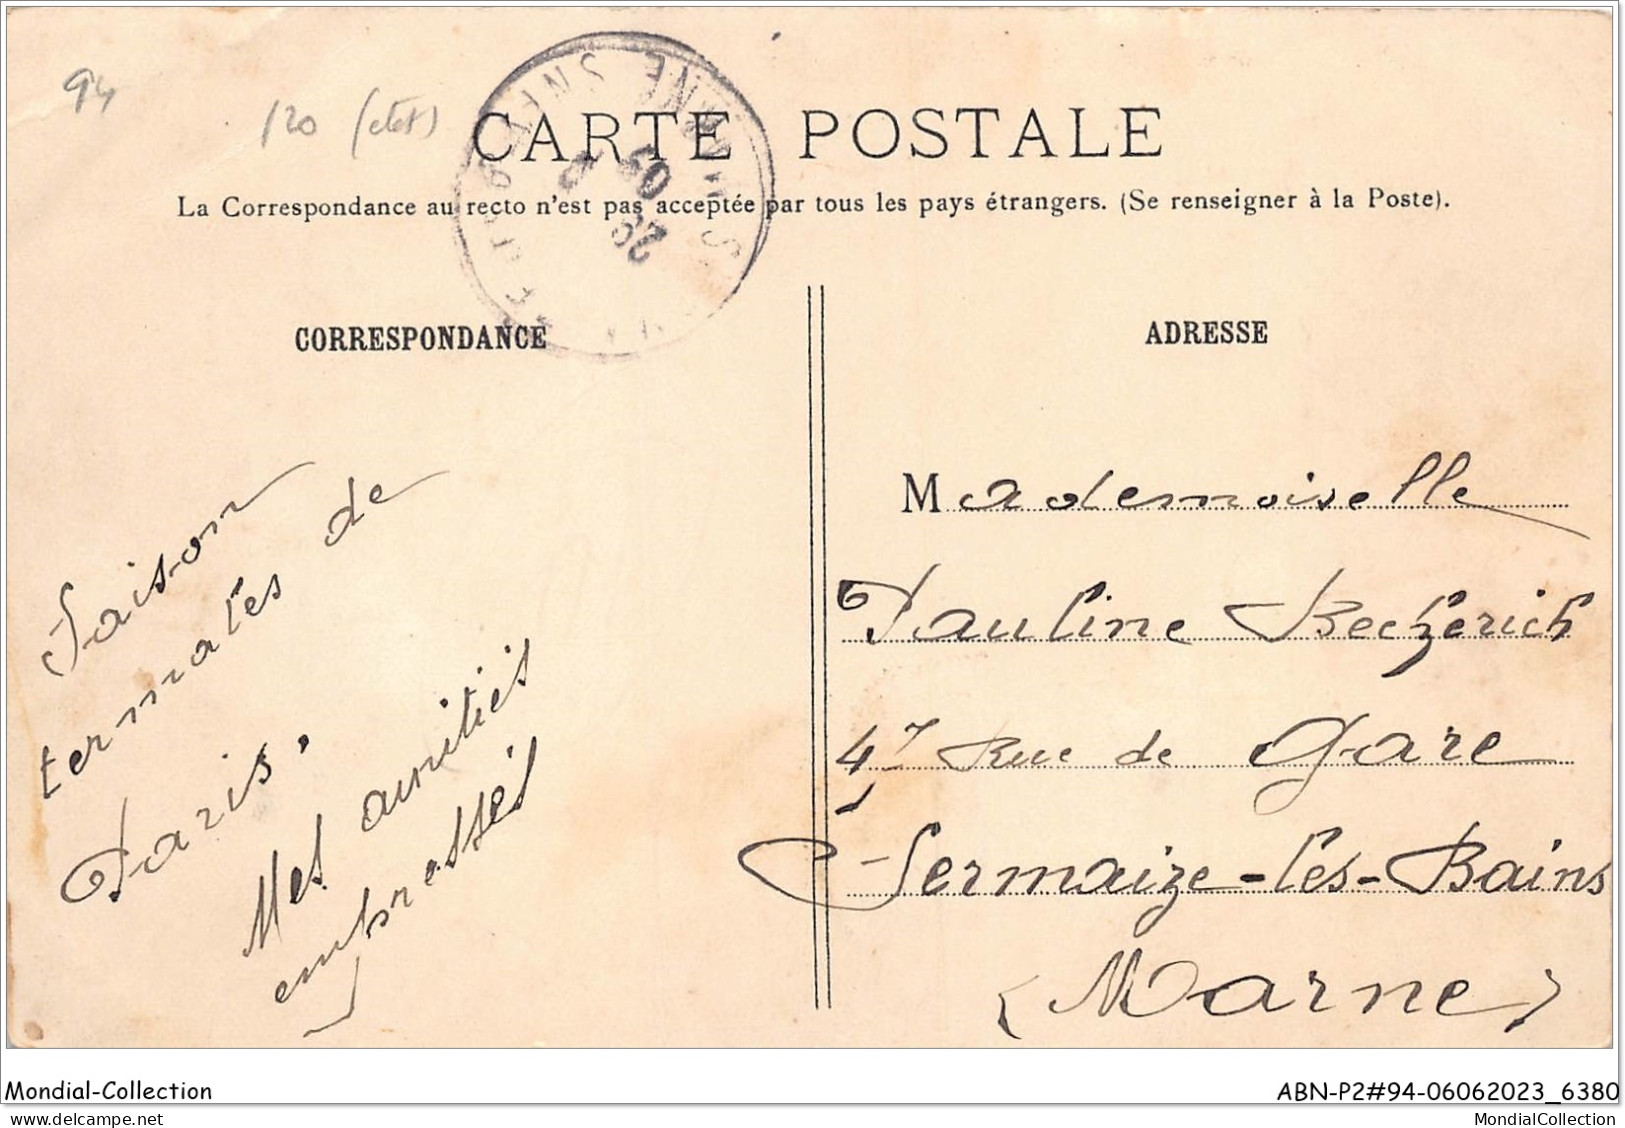 94
120 (etat)
CARTE POSTALE
La Correspondance au recto n'est pas acceptée par tous les pays étrangers. (Se renseigner à la Poste).
CORRESPONDANCE
Saison
termales de
Paris,
Mes amitiés
empressés
ADRESSE
Mademoiselle
Pauline Becherich
47 Rue de Gare
Sermaize-les-Bains
(Marne)
Mondial-Collection
ABN-P2#94-06062023_6380
MondialCollection